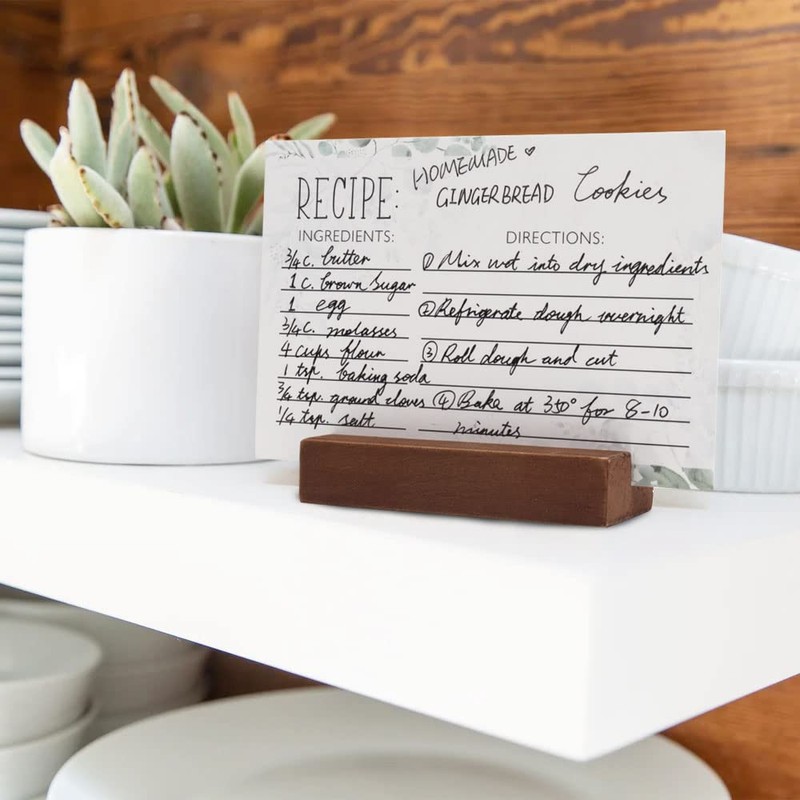 HOMEMADE ♥
RECIPE: GINGERBREAD Cookies
INGREDIENTS:
3/4 c. butter
1 c. brown sugar
1 egg
3/4 c. molasses
4 cups flour
1 tsp. baking soda
3/4 tsp. ground cloves
1/4 tsp. salt
DIRECTIONS:
① Mix wet into dry ingredients
② Refrigerate dough overnight
③ Roll dough and cut
④ Bake at 350° for 8-10
minutes